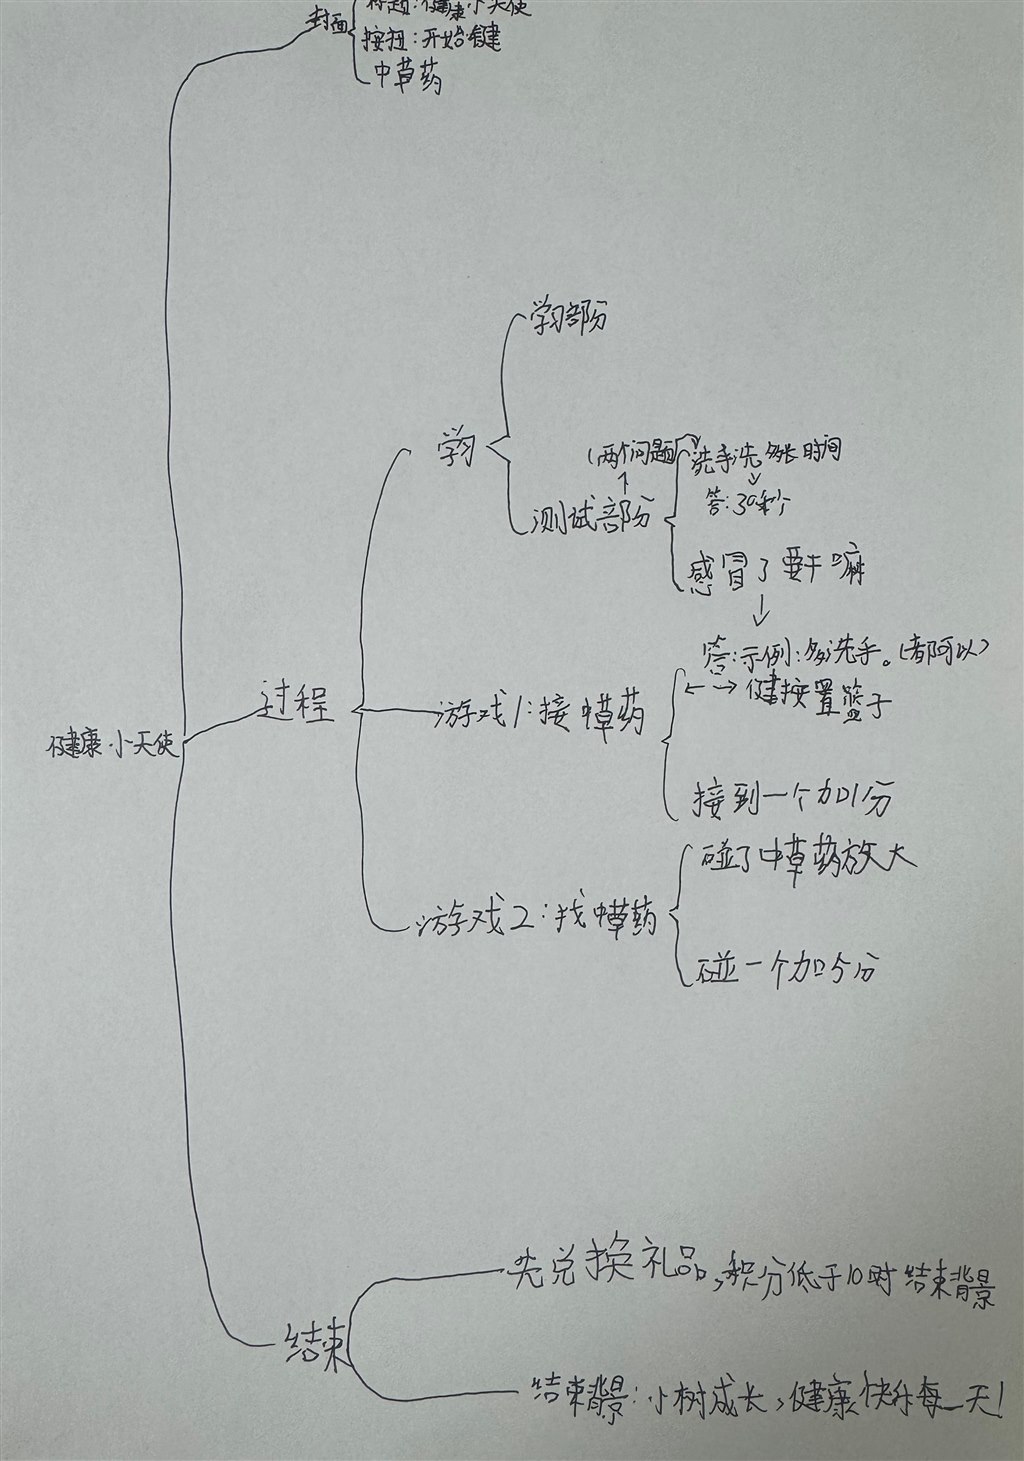 标题：健康小天使
封面
按扭：开始键
中草药
学习部份
学习
（两个问题
洗手洗多长时间
答：30秒
测试部份
感冒了要干嘛
答：示例：多洗手。（都可以）
←→健按置篮子
过程
游戏1：接中草药
健康小天使
接到一个加1分
碰了中草药放大
游戏2：找中草药
碰一个加5分
先兑换礼品，积分低于10时结束背景
结束
结束背景：小树成长，健康快乐每一天！